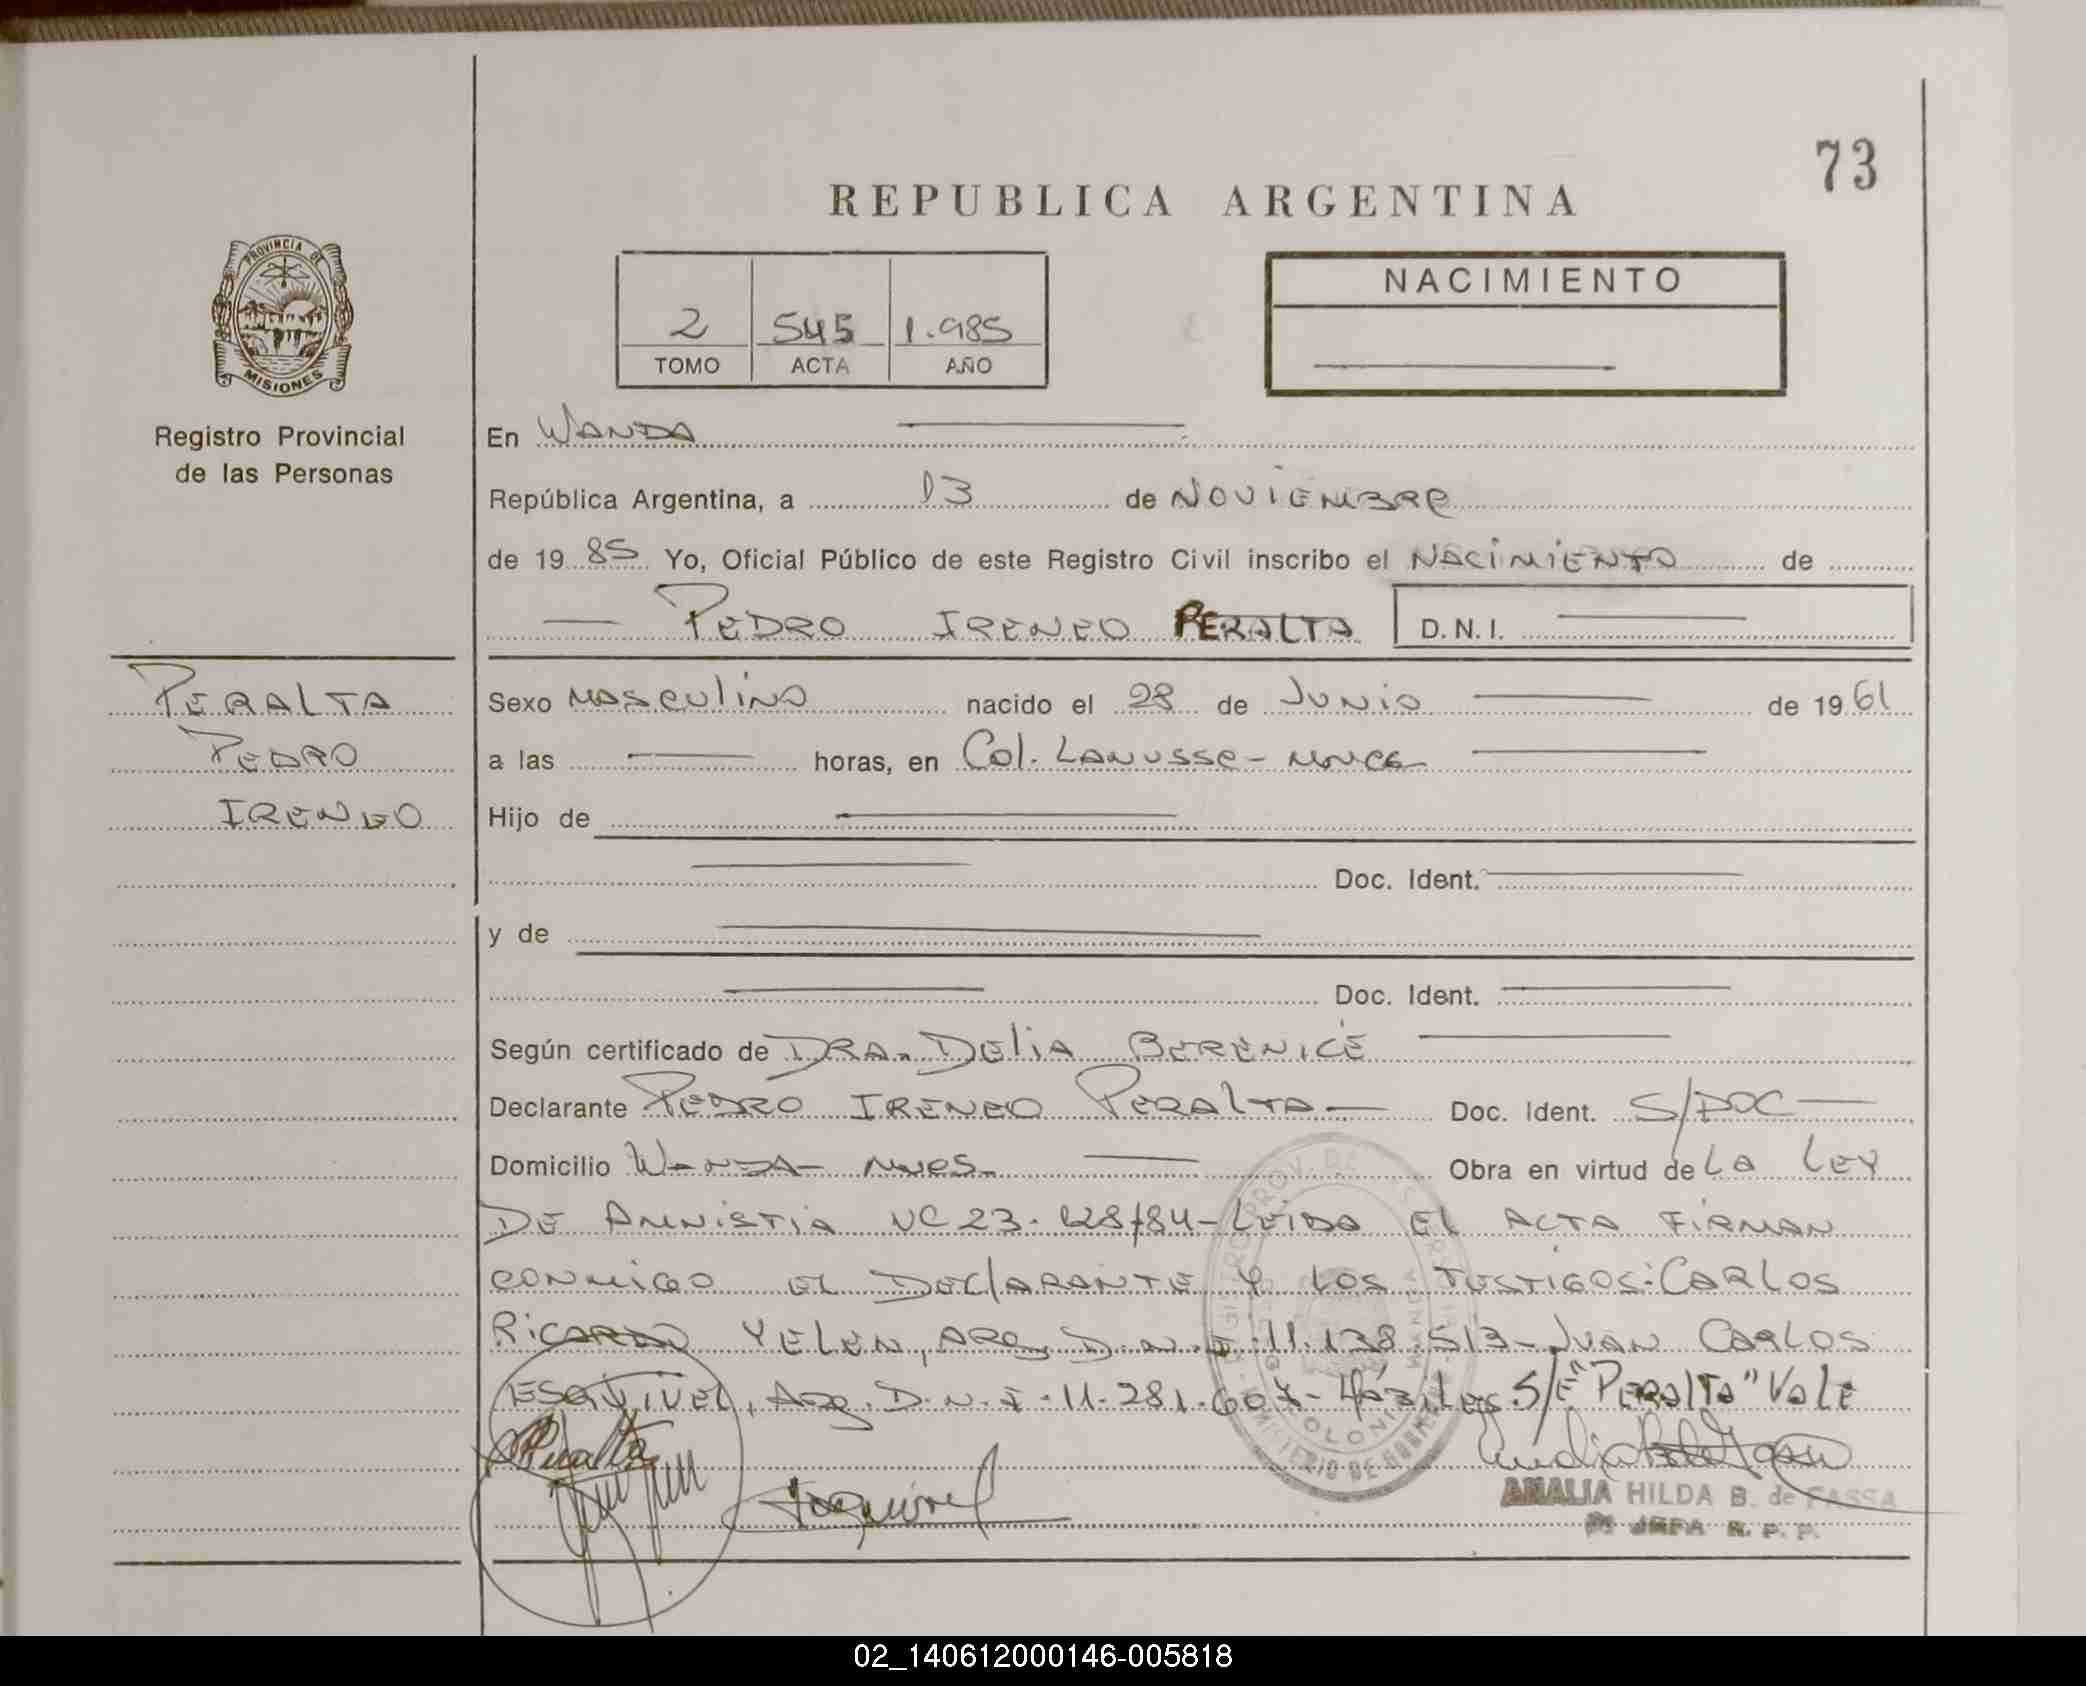 73
REPUBLICA ARGENTINA
PROVINCIA DE
MISIONES
Registro Provincial
de las Personas
2 545 1.985
TOMO ACTA AÑO
NACIMIENTO
En WANDA
República Argentina, a 13 de NOVIEMBRE
de 19 85 Yo, Oficial Público de este Registro Civil inscribo el NACIMIENTO de
PEDRO IRENEO PERALTA D.N.I.
PERALTA
PEDRO
IRENEO
Sexo MASCULINO nacido el 28 de JUNIO de 19 61
a las horas, en Col. LANUSSE-
Hijo de
Doc. Ident.
y de
Doc. Ident.
Según certificado de DRA. DELIA BERENICE
Declarante PEDRO IRENEO PERALTA Doc. Ident. S/DOC
Domicilio WANDA- Obra en virtud de LA LEY
DE AMNISTIA 23. /84-LEIDA EL ACTA FIRMAN
CONMIGO EL DECLARANTE Y LOS TESTIGOS: CARLOS
RICARDO YELEN, ARG. D.N.I. 11.138.513-JUAN CARLOS
ESQUIVEL, ARG. D.N.I. 11.281.607- S/E "PERALTA" VALE
Peralta
Esquivel
AMALIA HILDA B. de FASSA
JEFA R. P. P.
02_140612000146-005818